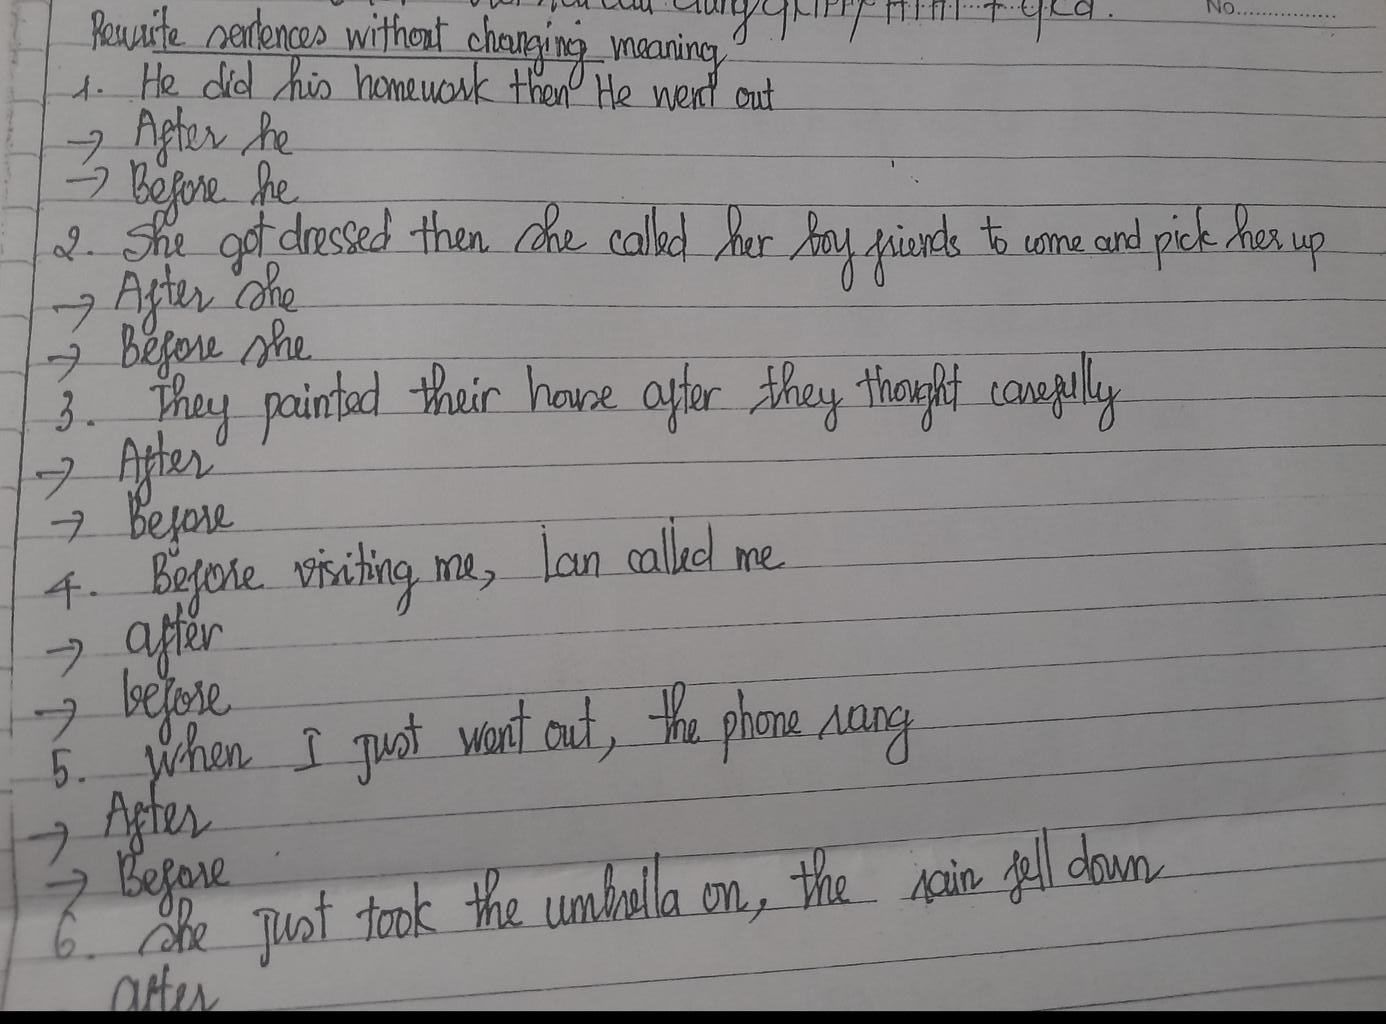 No.
Rewrite sentences without changing meaning
1. He did his homework then He went out
→ After he
→ Before he
2. She got dressed then she called her boy friends to come and pick her up
→ After she
→ Before she
3. They painted their house after they thought carefully
→ After
→ Before
4. Before visiting me, Ian called me
→ after
→ before
5. When I just went out, the phone rang
→ After
→ Before
6. She just took the umbrella on, the rain fell down
after